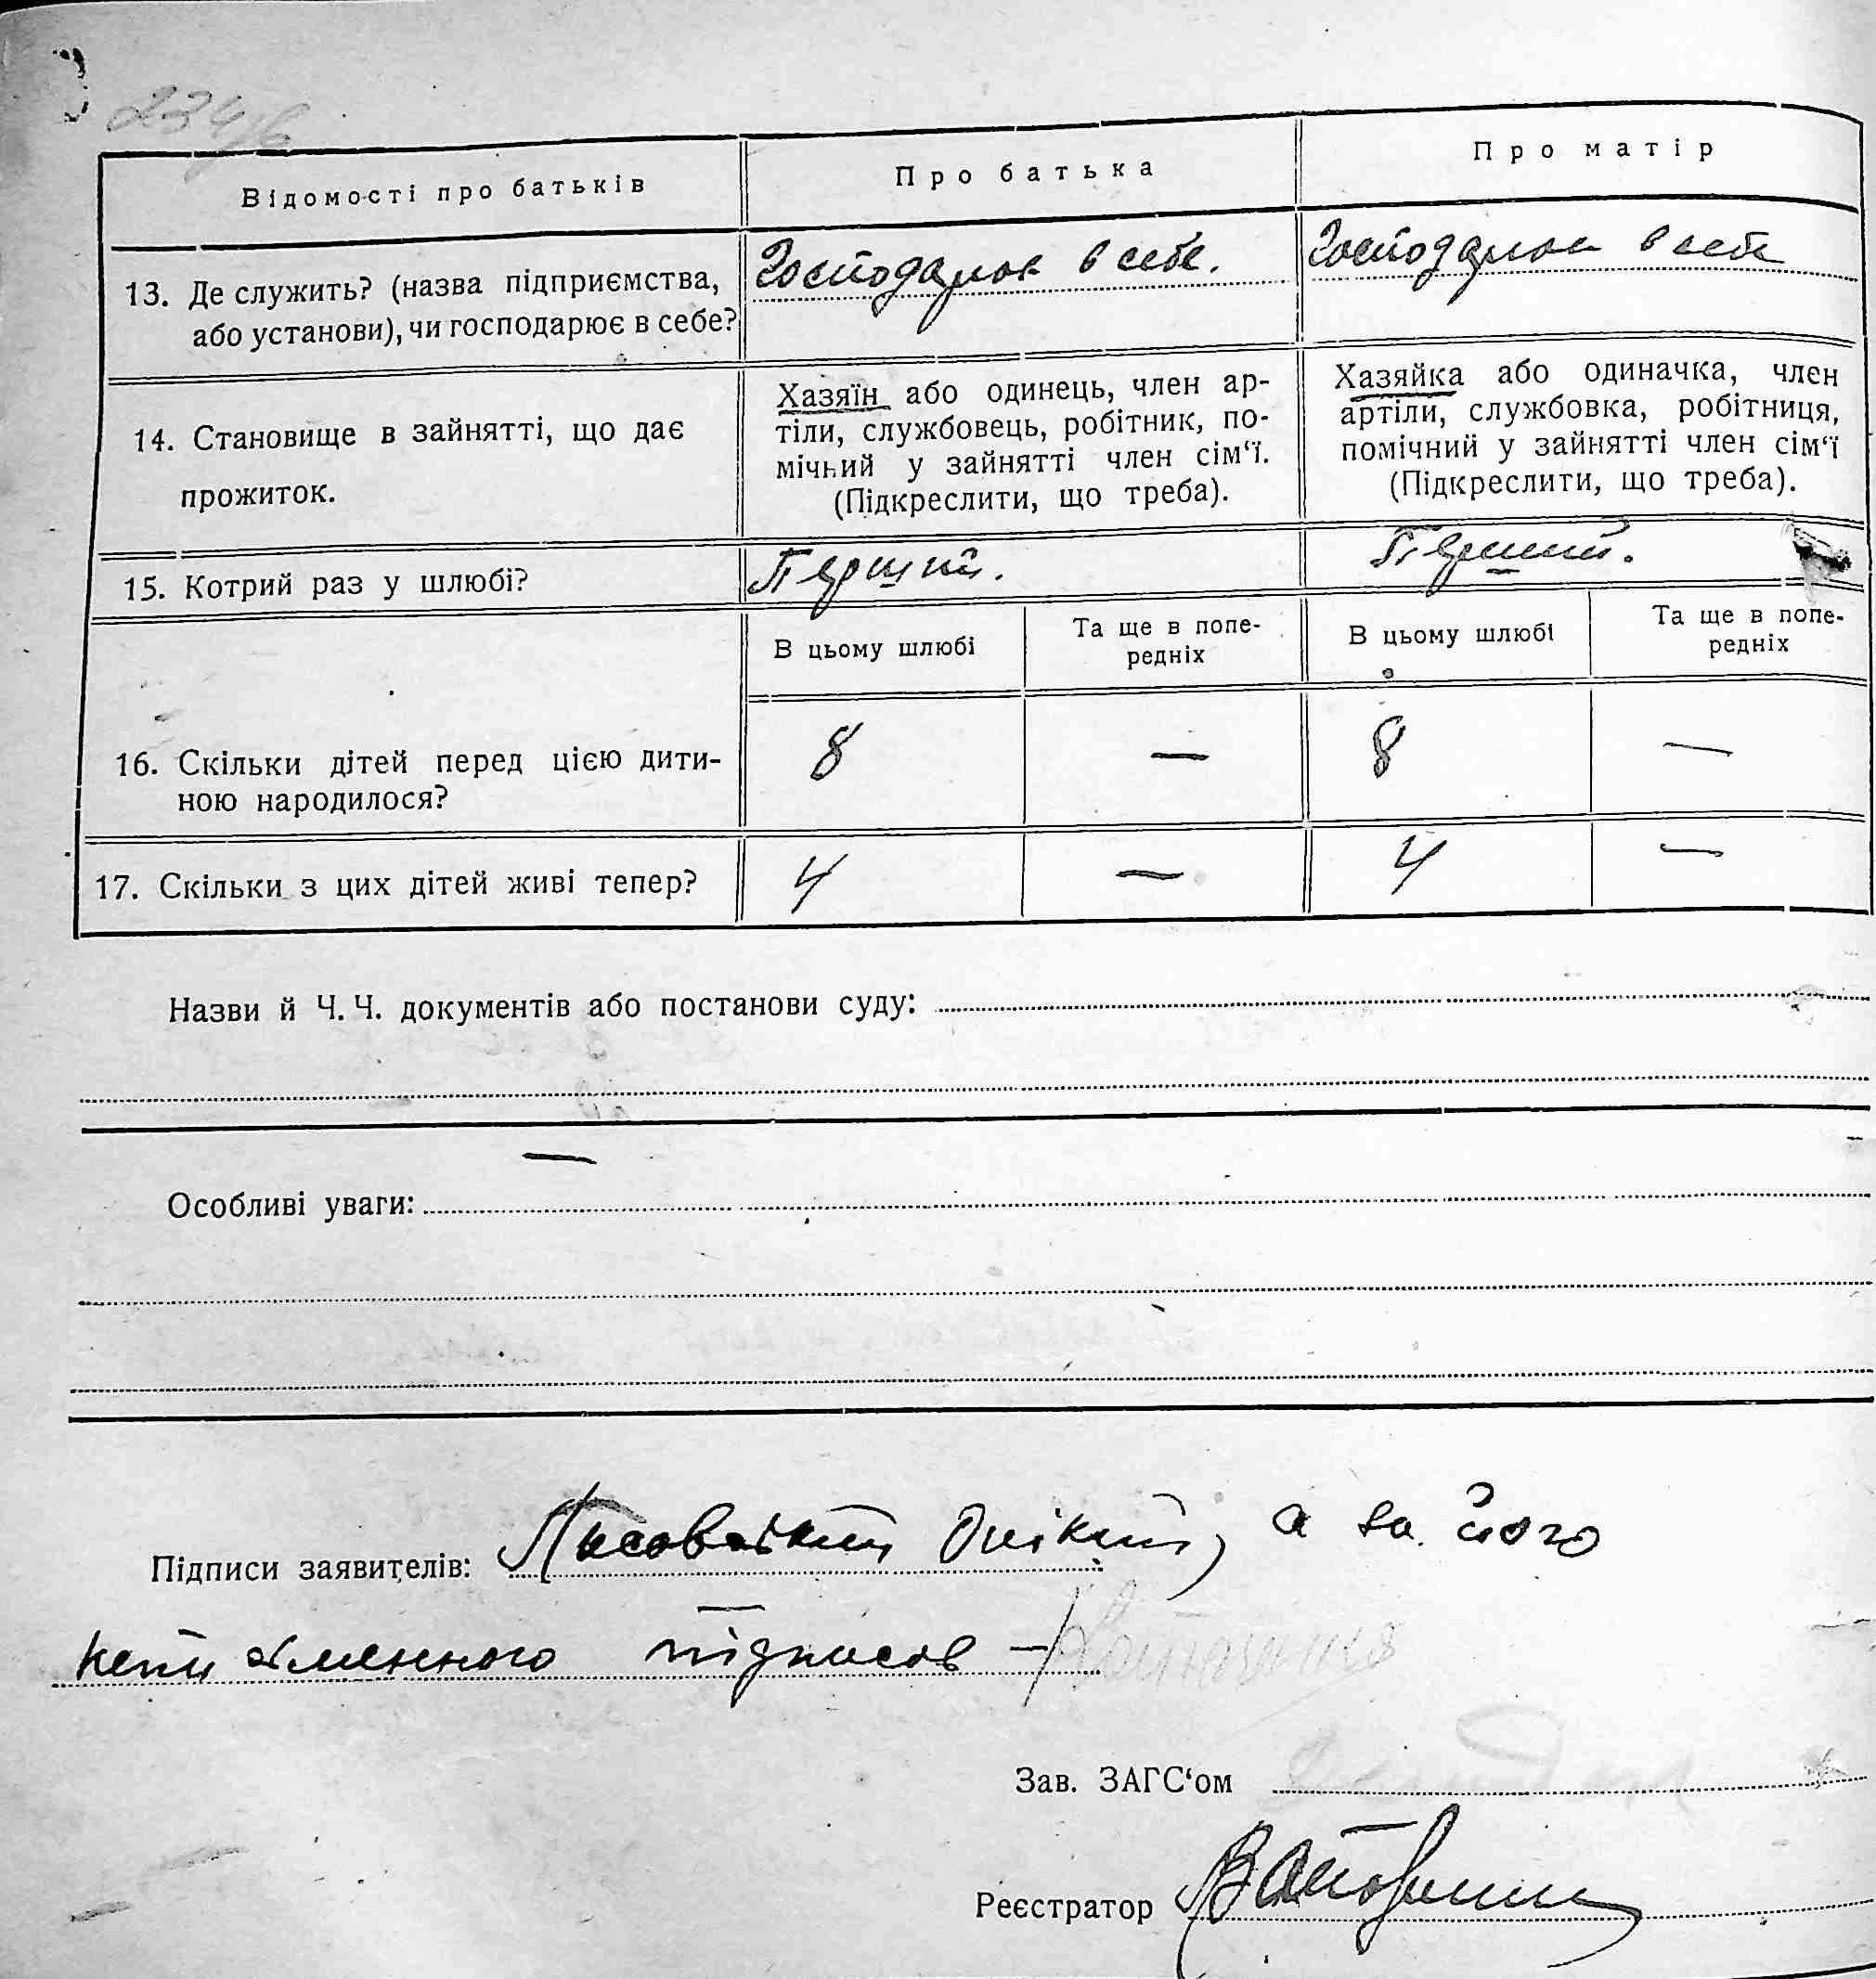 234/б
Відомості про батьків
Про батька
Про матір
13. Де служить? (назва підприємства,
або установи), чи господарює в себе?
Господарює в себе.
Господарює в себе
14. Становище в зайнятті, що дає
прожиток.
Хазяїн або одинець, член ар-
тіли, службовець, робітник, по-
мічний у зайнятті член сім‘ї.
(Підкреслити, що треба).
Хазяйка або одиначка, член
артіли, службовка, робітниця,
помічний у зайнятті член сім‘ї
(Підкреслити, що треба).
15. Котрий раз у шлюбі?
Перший.
Перший.
В цьому шлюбі
Та ще в попе-
редніх
В цьому шлюбі
Та ще в попе-
редніх
16. Скільки дітей перед цією дити-
ною народилося?
8 — 8 —
17. Скільки з цих дітей живі тепер?
4 — 4 —
Назви й Ч. Ч. документів або постанови суду:
—
Особливі уваги:
Підписи заявителів: а за його
підписав —
Зав. ЗАГС‘ом
Реєстратор